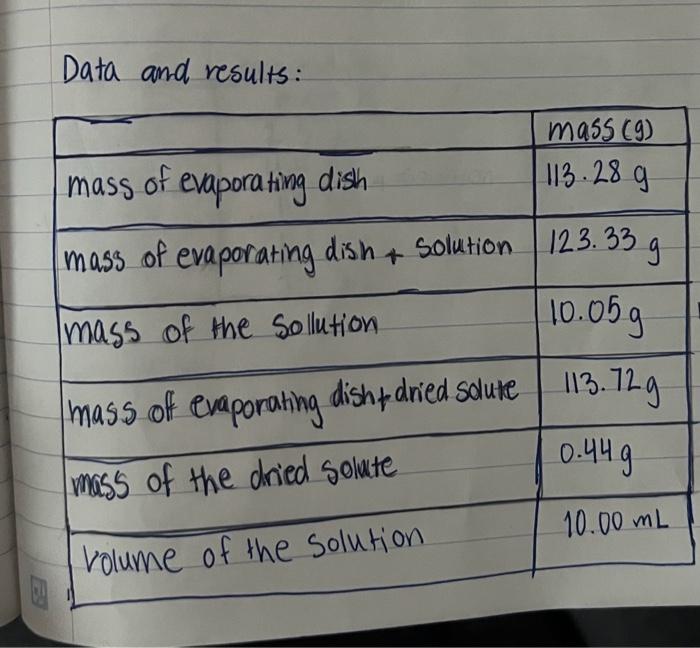 Data and results:
mass (g)
mass of evaporating dish 113.28 g
mass of evaporating dish + solution 123.33 g
mass of the sollution 10.05 g
mass off evaporating dish + dried solute 113.72 g
mass of the dried solute 0.44 g
volume of the solution 10.00 mL